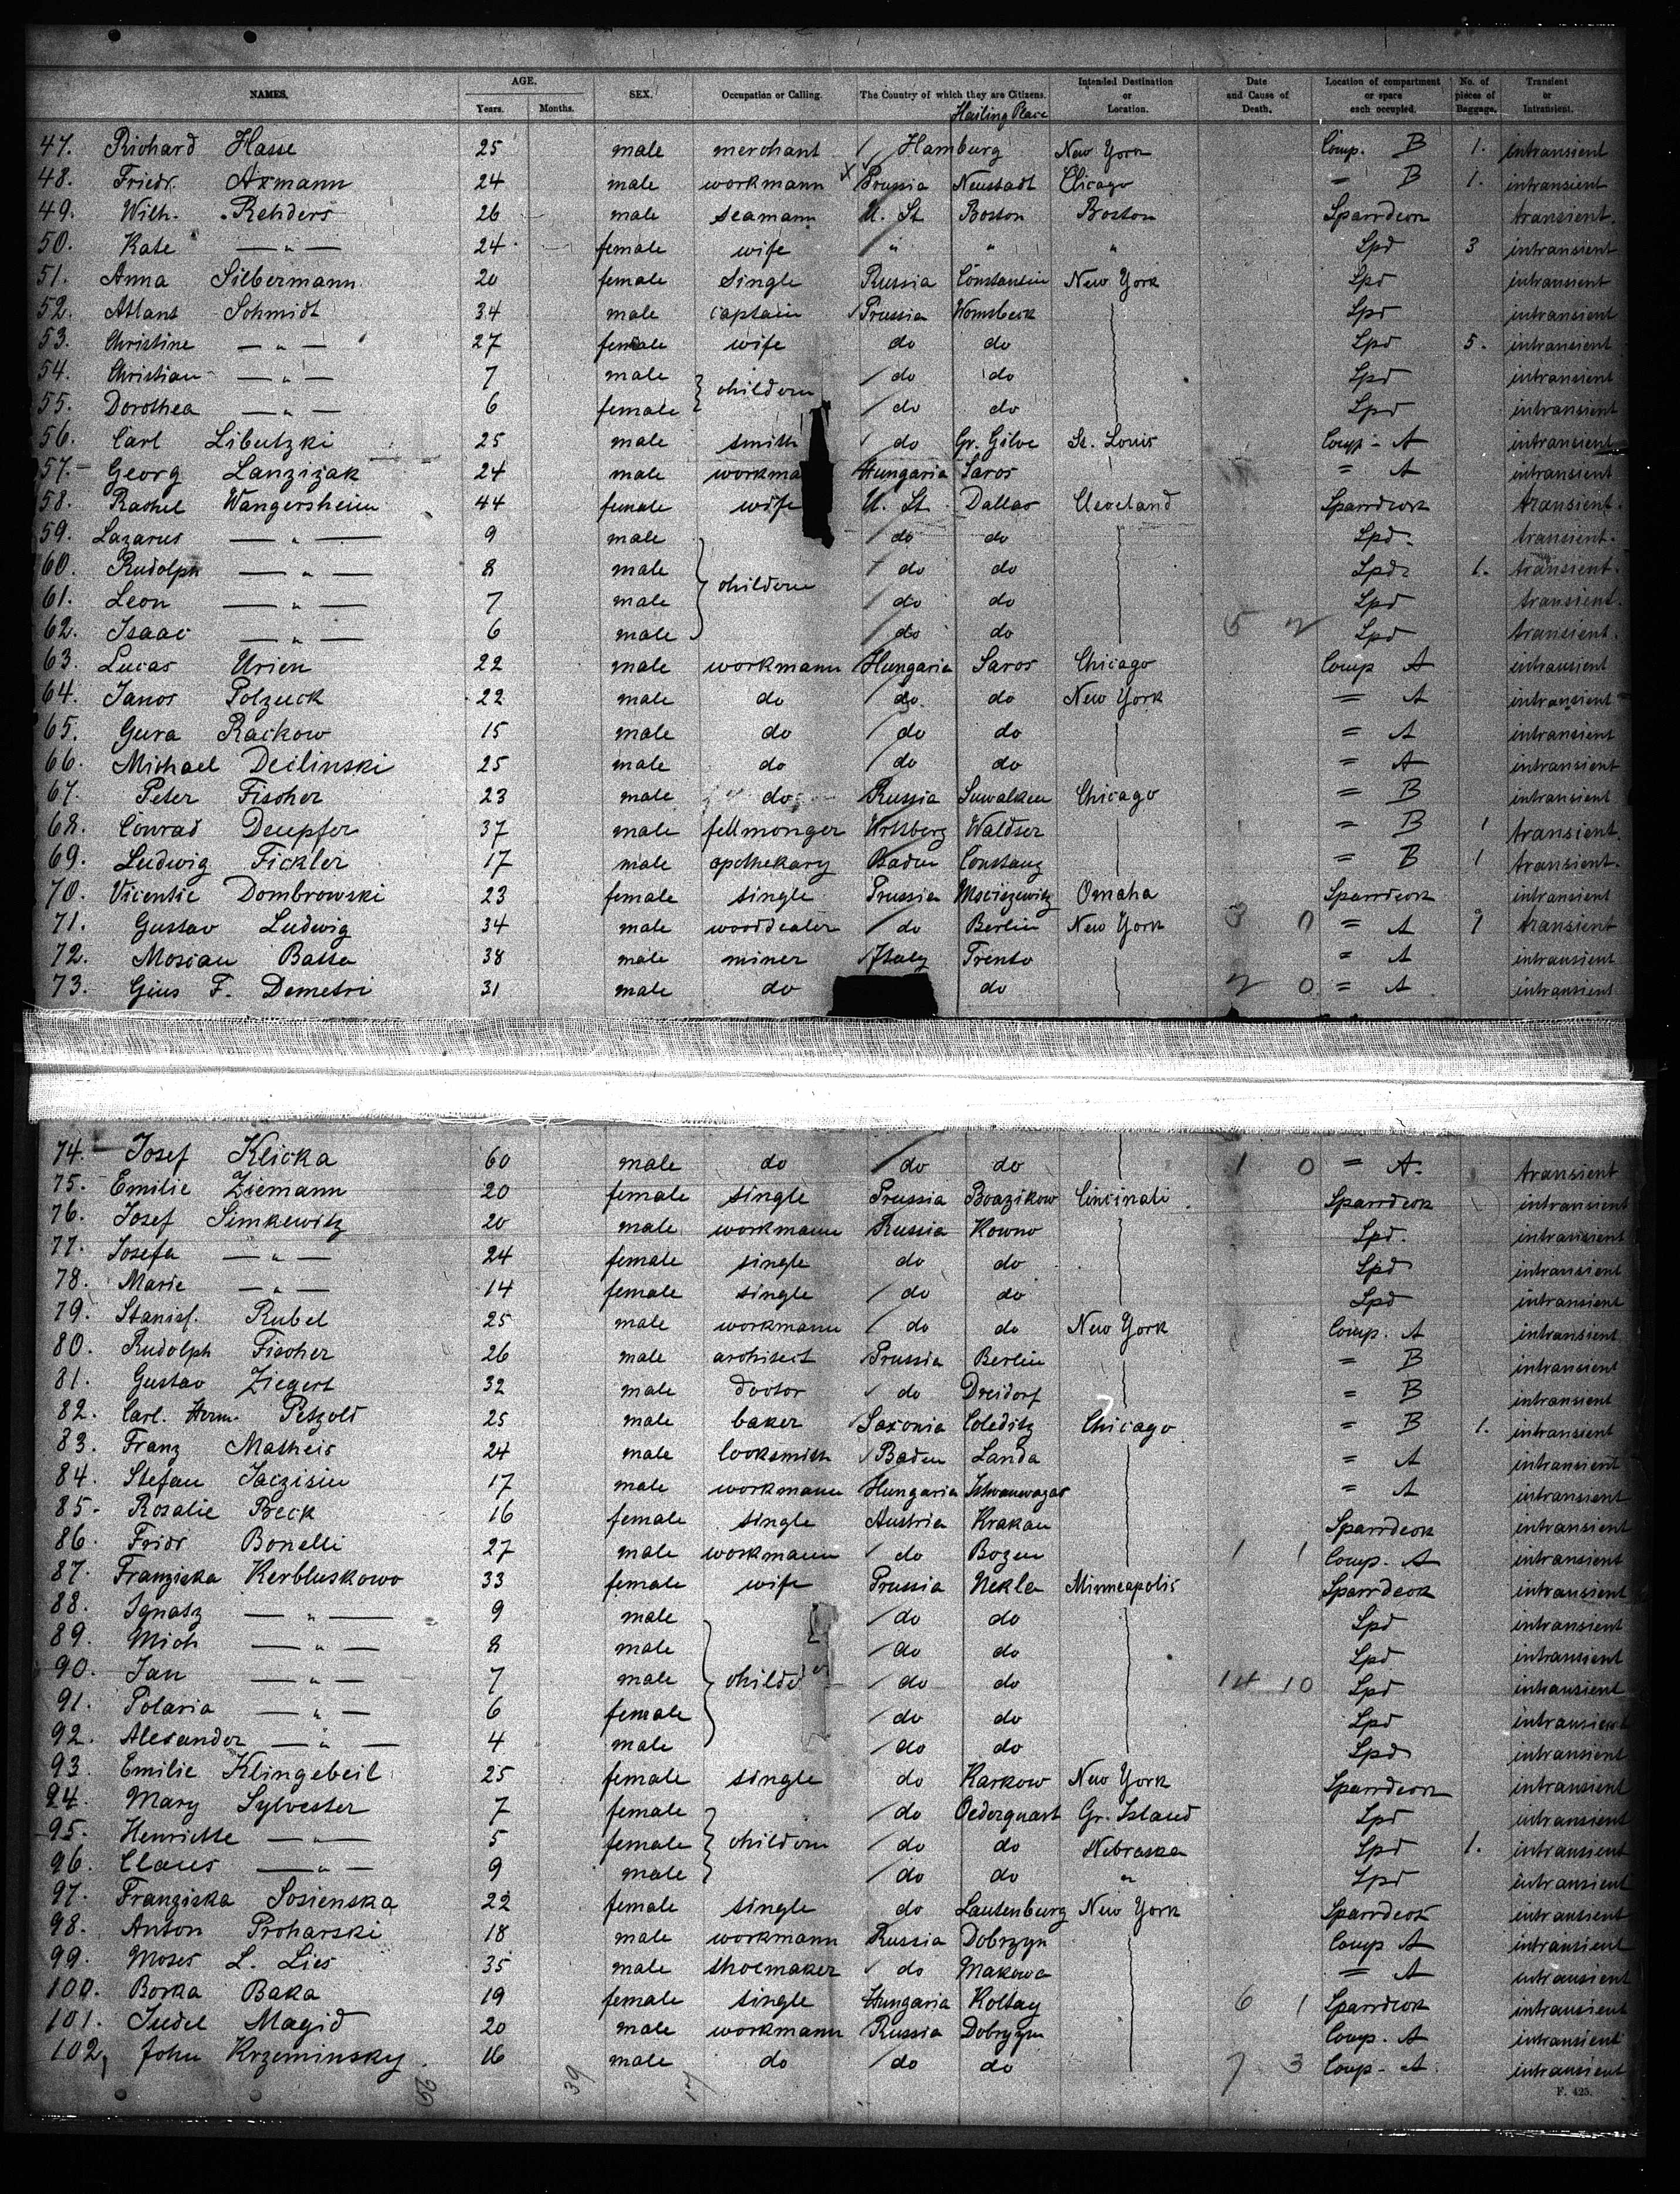 NAMES. AGE. Years. Months. SEX. Occupation or Calling. The Country of which they are Citizens. Intended Destination or Location. Date and Cause of Death. Location of compartment or space each occupied. No. of pieces of Baggage. Transient or Intransient.
Hailing Place
47. Richard Hasse 25 male merchant / Hamburg New York Comp. B 1. intransient
48. Friedr. Axmann 24 male workmann x Prussia Neustadt Chicago = B 1. intransient
49. Wilh. Rehders 26 male seamann U. St Boston Boston Sparrdeck transient.
50. Kate — " — 24 female wife " " " Spd 3 intransient
51. Anna Silbermann 20 female Single Russia Constantin New York Spd intransient
52. Atlans Schmidt 34 male captain Prussia Womsbeck Spd intransient
53. Christine — " — 27 female wife do do Spd 5. intransient
54. Christian — " — 7 male } childern do do Spd intransient
55. Dorothea — " — 6 female do do Spd intransient
56. Carl Libutzki 25 male smith do Gr. Gilve St. Louis Comp - A intransient
57. Georg Lanzizak 24 male workma Hungaria Saros = A intransient
58. Rachel Wangersheim 44 female wife U. St. Dallas Cleveland Sparrdeck transient.
59. Lazarus — " — 9 male do do Spd. transient.
60. Rudolph — " — 8 male } childern do do Spd. 1. transient.
61. Leon — " — 7 male do do Spd transient.
62. Isaac — " — 6 male do do 5 2 Spd transient.
63. Lucas Urien 22 male workmann Hungaria Saros Chicago Comp A intransient
64. Janos Polzuck 22 male do do. do New York = A intransient
65. Gura Rackow 15 male do do do = A intransient
66. Michael Decilinski 25 male do do do = A intransient
67. Peter Fischer 23 male do Russia Suwalken Chicago = B intransient
68. Conrad Deupfer 37 male fellmonger Wrttberg Waldser = B 1 transient.
69. Ludwig Fickler 17 male apothekary Baden Constanz = B 1 transient.
70. Vicentie Dombrowski 23 female single Prussia Msciszewitz Omaha Sparrdeck intransient
71. Gustav Ludwig 34 male wooddealer do Berlin New York 3 0 = A 1 transient
72. Mosian Batta 38 male miner Italy Trento = A intransient
73. Gius F. Demetri 31 male do do 2 0 = A intransient
74. Josef Klicka 60 male do do do 1 0 = A. transient
75. Emilie Ziemann 20 female single Prussia Boazikow Cincinati Sparrdeck intransient
76. Josef Simkewitz 20 male workmann Russia Kowno Spd. intransient
77. Josefa — " — 24 female single do do Spd intransient
78. Marie — " — 14 female single do do Spd intransient
79. Stanisl. Rubel 25 male workmann do do New York Comp. A intransient
80. Rudolph Fischer 26 male architect Prussia Berlin = B intransient
81. Gustav Ziegert 32 male doctor do Dreidorf = B intransient
82. Carl. Herm. Petzold 25 male baker Saxonia Colditz Chicago = B 1. intransient
83. Franz Matheis 24 male locksmith Baden Landa = A intransient
84. Stefan Jaczisin 17 male workmann Hungaria = A intransient
85. Rosalie Beck 16 female single Austria Krakau Sparrdeck intransient
86. Fridr Bonelli 27 male workmann do Bozen 1 1 Comp. A intransient
87. Franziska Kerbluskowo 33 female wife Prussia Nekla Minneapolis Sparrdeck intransient
88. Ignatz — " — 9 male do do Spd intransient
89. Mich — " — 8 male do do Spd intransient
90. Jan — " — 7 male } childe do do 14 10 Spd intransient
91. Polaria — " — 6 female do do Spd intransient
92. Alexander — " — 4 male do do Spd intransient
93. Emilie Klingebeil 25 female single do Karkow New York Sparrdeck intransient
94. Mary Sylvester 7 female do Oederquart Gr. Island Spd intransient
95. Henriette — " — 5 female } childern do do Nebraska Spd 1. intransient
96. Claus — " — 9 male do do " Spd intransient
97. Franziska Sosienska 22 female single do Lautenburg New York Sparrdeck intransient
98. Anton Proharski 18 male workmann Russia Dobrzyn Comp A intransient
99. Moses L. Lies 35 male shoemaker do Makowa = A intransient
100. Borka Baka 19 female single Hungaria Koltay 6 1 Sparrdeck intransient
101. Judel Magid 20 male workmann Russia Dobrzyn Comp. A intransient
102, John Krzeminsky 16 male do do do 7 3 Comp - A intransient
56 39 17
F. 425.